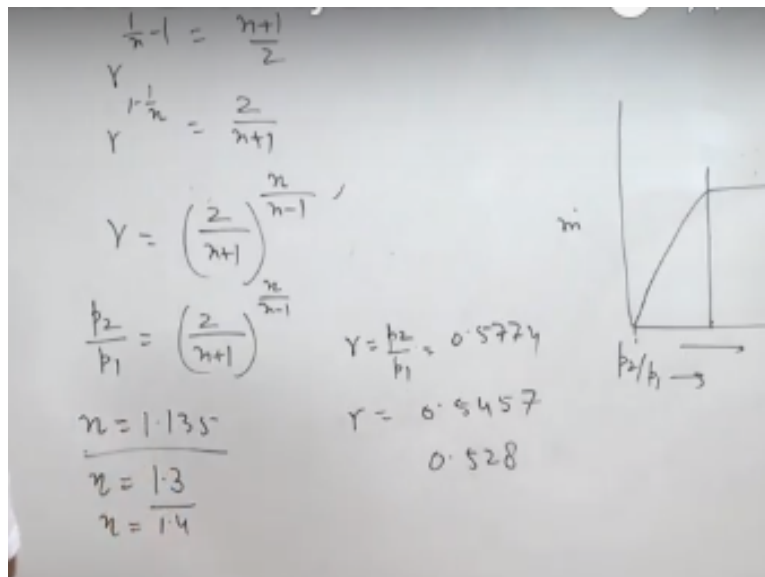 r^{\frac{1}{n}-1} = \frac{n+1}{2}
r^{1-\frac{1}{n}} = \frac{2}{n+1}
r = \left(\frac{2}{n+1}\right)^{\frac{n}{n-1}},
\frac{p_2}{p_1} = \left(\frac{2}{n+1}\right)^{\frac{n}{n-1}}
n = 1.135
n = 1.3
n = 1.4
r = \frac{p_2}{p_1} = 0.5774
r = 0.5457
0.528
ṁ
p_2/p_1 →